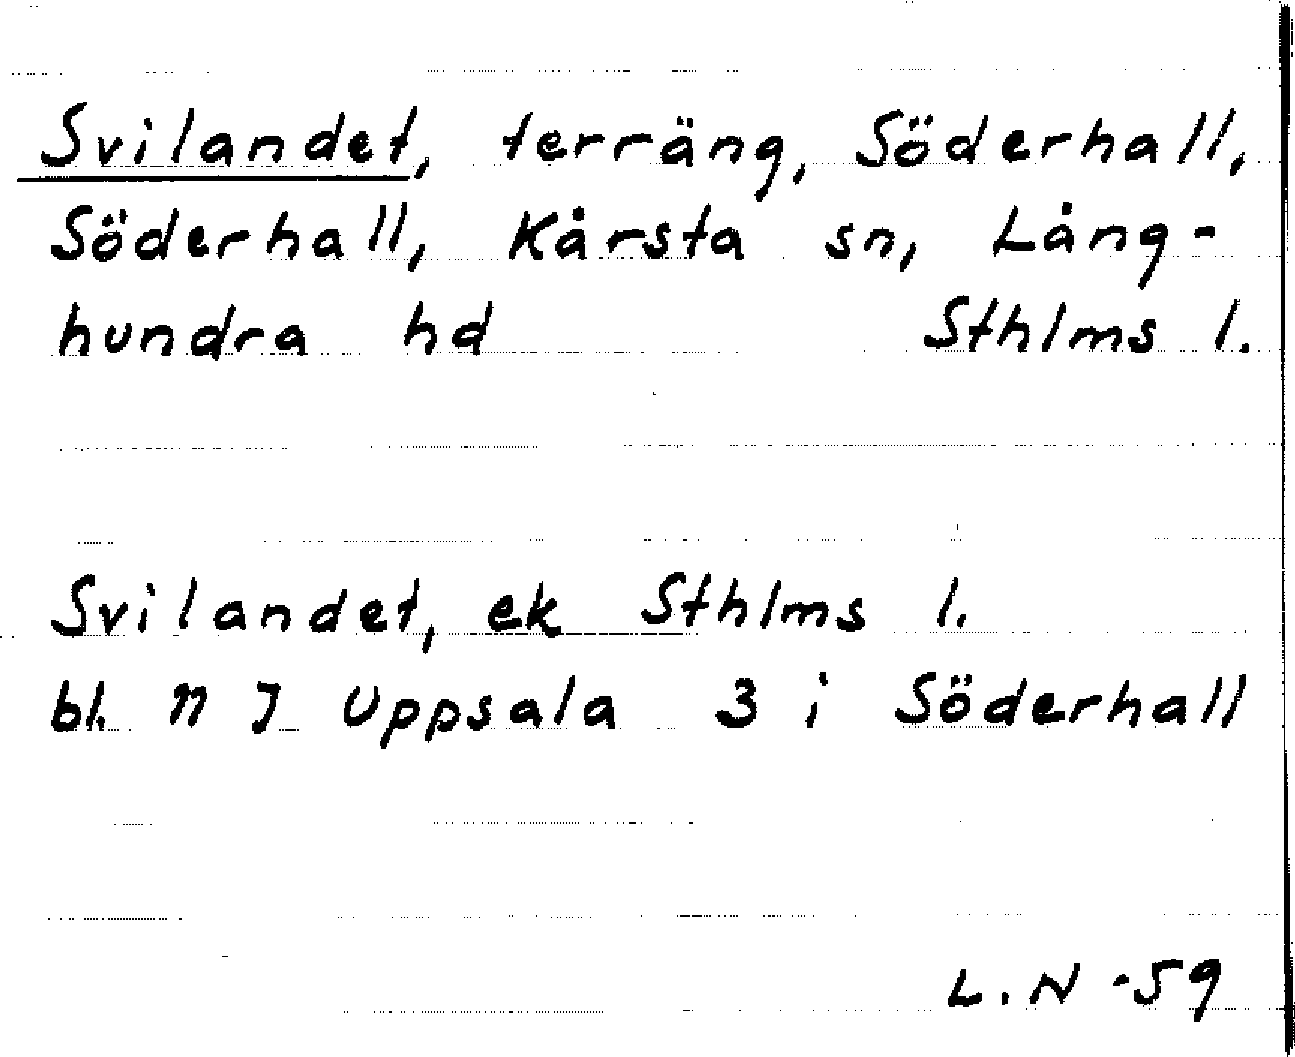 Svilandet, terräng, Söderhall,
Söderhall, Kårsta sn, Lång-
hundra hd Sthlms l.
Svilandet, ek Sthlms l.
bl. N J Uppsala 3 i Söderhall
L.N -59